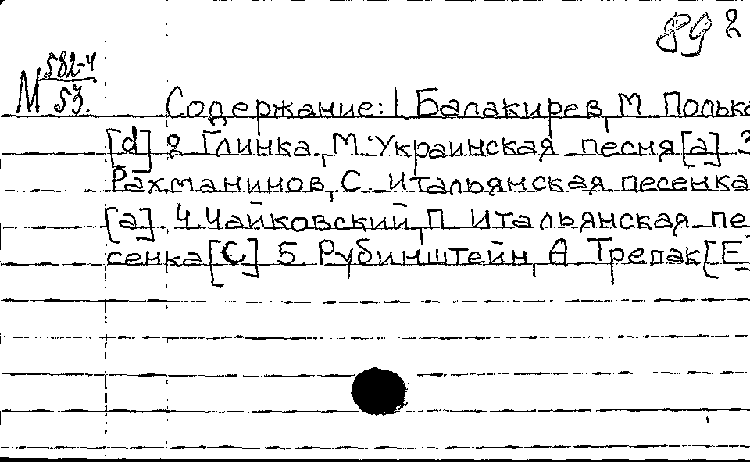 892
М 582-4
53.
Содержание: 1 Балакирев, М Полька
[d] 2 Глинка, М. Украинская песня [a] 3
Рахманинов, С. Итальянская песенка
[a]. 4. Чайковский, П Итальянская пе
сенка [C] 5 Рубинштейн, А Трепак [E